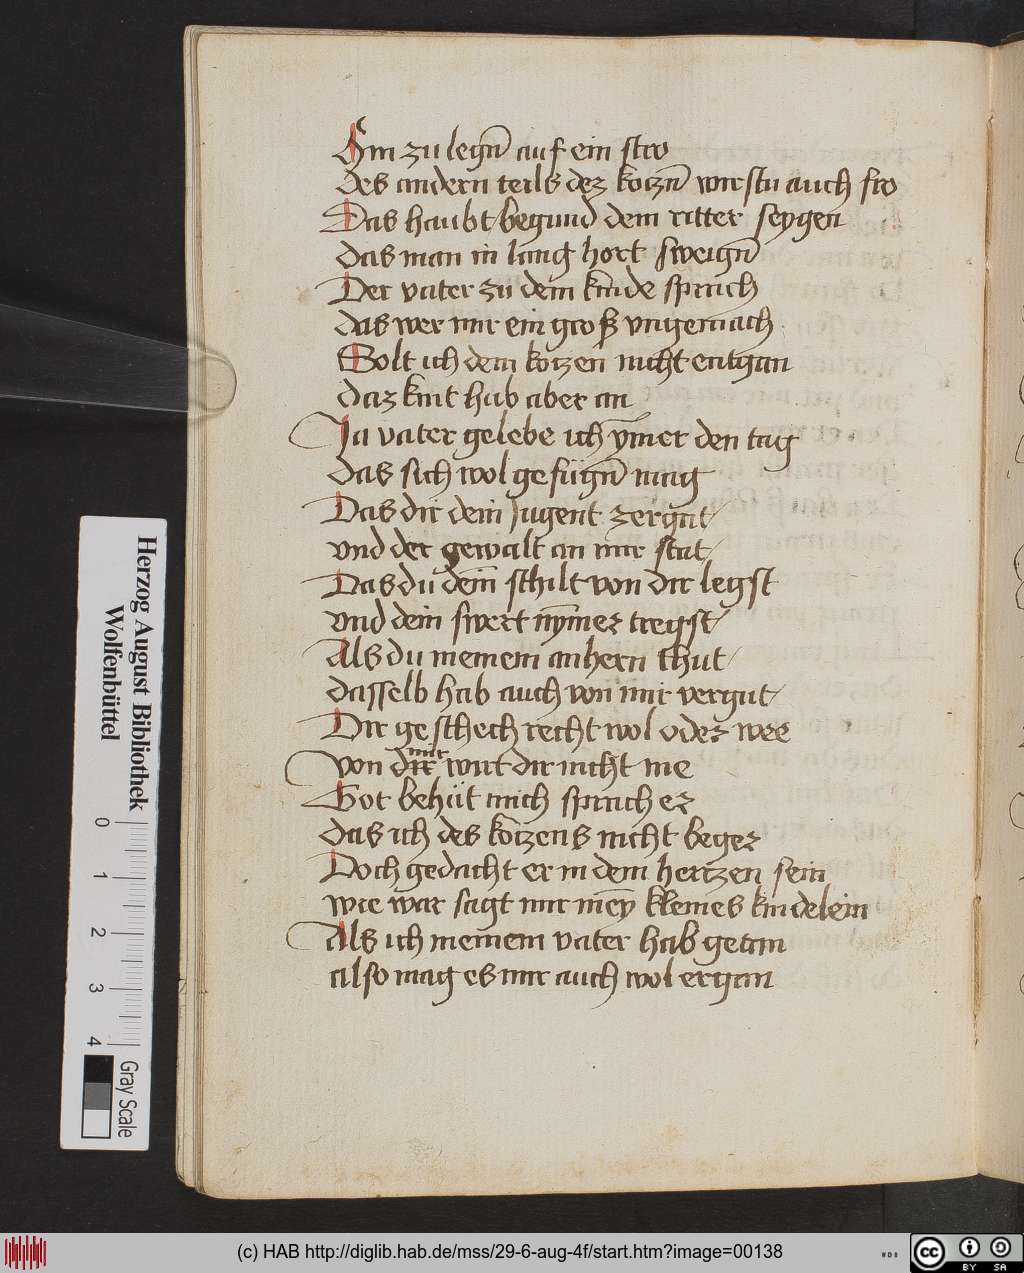 Hin zu legn̄ auf ein stro
des andern teils dez kotzn̄ wirstu auch fro
Das haubt begund dem ritter seygen
das man in lang hort sweign̄
Der vater zu dem kinde sprach
das wer mir ein groß vngemach
Solt ich dem kotzen nicht entgan
daz kint hub aber an
Ja vater gelebe ich ym̄er den tag
das sich wol gefügn̄ mag
Das dir dein Jugent zergat
vnd der gewalt an mir stat
Das du dein̄ schilt von dir legst
vnd dein swert nym̄ez tregst
Als du meinem anhern thut
dasselb hab auch von mir vergut
Dir geschech recht wol odez wee
Von dir mir wirt dir nicht me
Got behüt mich sprach ez
das ich des kotzens nicht begez
Doch gedacht er in dem hertzen sein
wie war sagt mir meȳ kleines kindelein
Als ich meinem vater hab getan
also mag es mir auch wol ergan
Herzog August Bibliothek
Wolfenbüttel
0 1 2 3 4
Gray Scale
(c) HAB http://diglib.hab.de/mss/29-6-aug-4f/start.htm?image=00138
WDB
cc BY SA